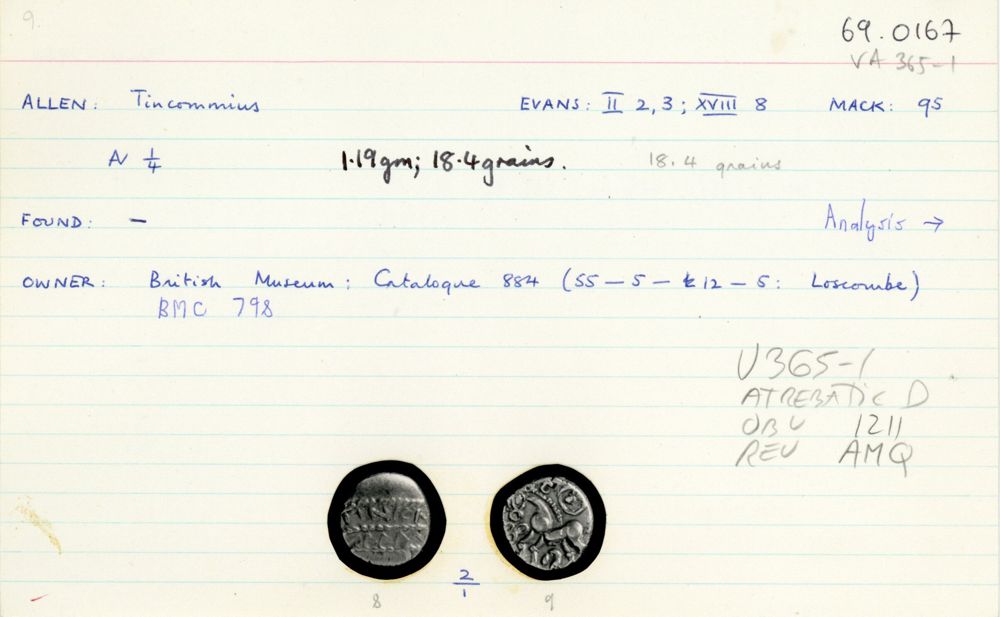 9.
69.0167
VA 365-1
ALLEN: Tincommius EVANS: II 2, 3; XVIII 8 MACK: 95
N 1/4 1.19gm; 18.4grains. 18.4 grains
FOUND: — Analysis →
OWNER: British Museum: Catalogue 884 (55 – 5 – 12 – 5: Loscombe)
BMC 798
V365-1
ATREBATIC D
OBV 1211
REV AMQ
2/1
8 9